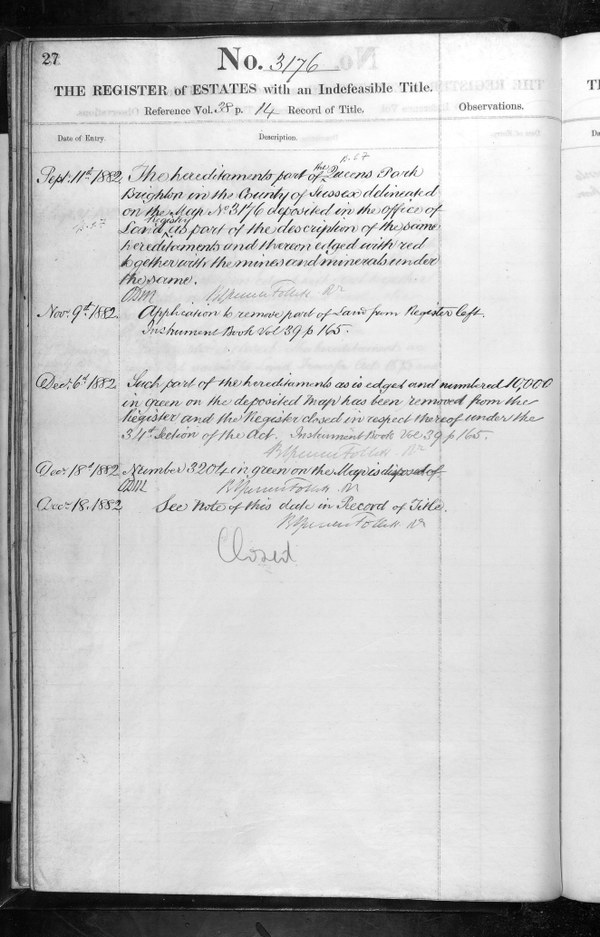 27
No. 3176
THE REGISTER of ESTATES with an Indefeasible Title.
Reference Vol. 38 p. 14 Record of Title.
Observations.
Date of Entry.
Description.
Sept. 11th 1882. The hereditaments part of the Queens Park
Brighton in the County of Sussex delineated
on the Map No 3176 deposited in the office of
Land Registry as part of the description of the same
hereditaments and thereon edged with red
together with the mines and minerals under
the same.
Nov. 9th 1882. Application to remove part of Land from Register left.
Instrument Book Vol 39 p 165.
Dec. 6th 1882 Such part of the hereditaments as is edged and numbered 10,000
in green on the deposited Map has been removed from the
Register and the Register closed in respect thereof under the
34th Section of the Act. Instrument Book Vol 39 p 165.
Dec. 18th 1882 Number 3204 in green on the Map is disposed of
Dec. 18. 1882 See Note of this date in Record of Title.
Closed